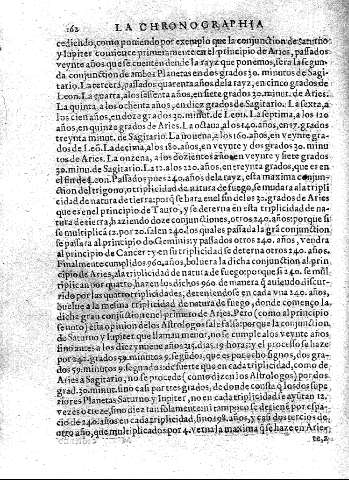 162 LA CHRONOGRAPHIA
cediendo, como poniendo por exemplo que la conjunction de Saturno
y Iupiter comience primeramente en el principio de Aries, passados
veynte años que se cuenten dende la rayz que ponemos, sera la segun
da conjunction de ambos Planetas en dos grados 30. minutos de Sagi-
tario. La tercera, passados quarenta años de la rayz, en cinco grados de
Leon. La quarta, a los sesenta años, en siete grados 30. minut. de Aries.
La quinta, a los ochenta años, en diez grados de Sagitario. La sexta, a
los cien años, en doze grados 30. minut. de Leon. La septima, a los 120
años, en quinze grados de Aries. La octaua, a los 140. años, en 17. grados
treynta minut. de Sagitario. La nouena, a los 160. años, en veynte gra-
dos de Leõ. La decima, a los 180. años, en veynte y dos grados 30. minu-
tos de Aries. La onzena, a los dozientos años, en veynte y siete grados
30. minu. de Sagitario. La 12. a los 220. años, en treynta grados, que es en
el fin de Leon. Passados pues 240. años de la rayz, esta maxima conjun-
ction del trigono, o triplicidad de natura de fuego, se mudara a la tripli
cidad de natura de tierra: porq̃ se hara en el fin de los 30. grados de Aries
que es en el principio de Tauro, y se deterna en esta triplicidad de na-
tura de tierra, haziendo doze conjunctiones, otros 240. años: porque si
se multiplicã 12. por 20. salen 240. los quales passados la grã conjunctiõ
se passara al principio de Geminis: y passados otros 240. años, vendra
al principio de Cancer: y en su triplicidad se deterna otros 240. años.
Finalmente cumplidos 960. años, boluera la dicha conjunction al prin-
cipio de Aries, a la triplicidad de natura de fuego: porque si 240. se mul
tiplican por quatro, hazen los dichos 960 de manera q̃ auiendo discur-
rido por las quatro triplicidades, deteniendose en cada vna 240. años,
buelue a la mesma triplicidad de natura de fuego, donde començo la
dicha gran conjunction en el primero de Aries. Pero (como al principio
se noto) esta opinion de los Astrologos sale falsa: porque la conjunction
de Saturno y Iupiter que llaman menor, no se cumple a los veynte años,
sino antes: a los diez y nueue años, 315. dias. 19. horas: y el processo se haze
por 242. grados 59. minutos 9. segũdos, que es por ocho signos, dos gra-
dos 59. minutos 9. segundos: de suerte que en cada triplicidad, como de
Aries a Sagitario, no se procede (como dizen los Astrologos) por dos
grad. 30. minut. sino casi por tres grados, de donde consta q̃ los dos supe-
riores Planetas Saturno y Iupiter, no en cada triplicidad se ayuntan 12.
vezes o treze, sino diez tan solamente: ni tampoco se detiene por espa-
cio de 240. años en cada triplicidad, sino 198. años, y casi dos tercios de
otro año, que multiplicados por 4. verna la maxima q̃ se haze en Aries,